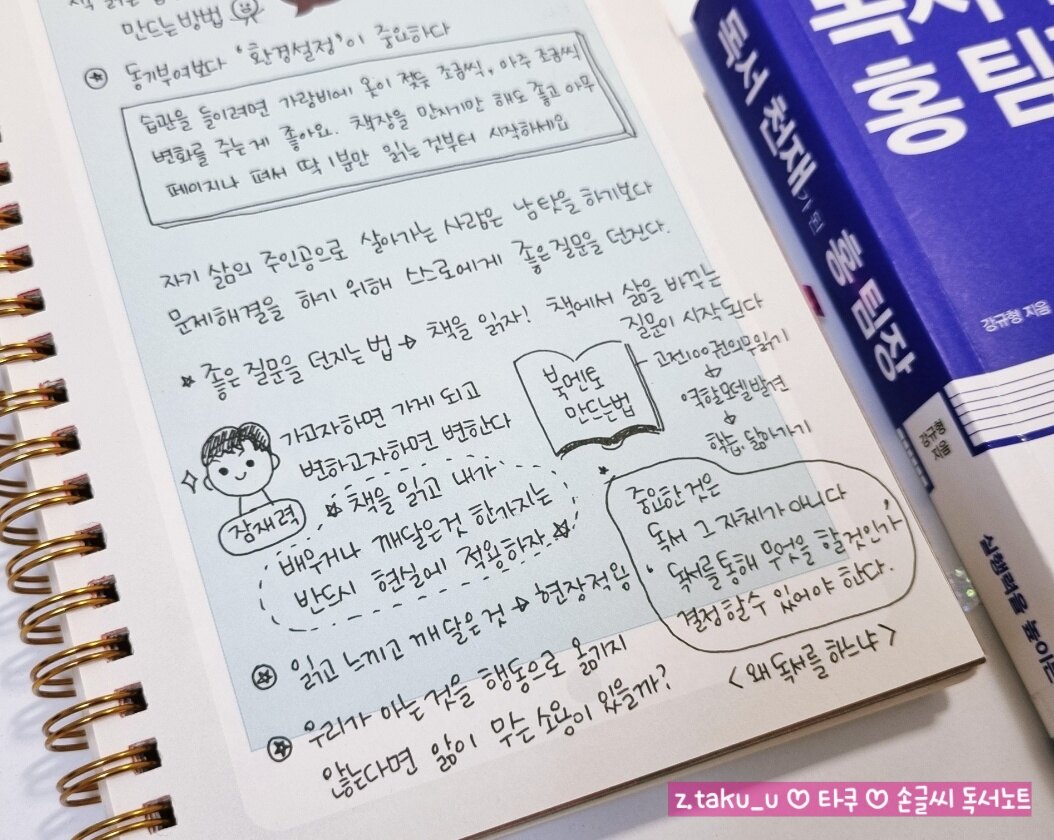 책 읽는
만드는 방법
동기부여보다 '환경설정'이 중요하다
습관을 들이려면 가랑비에 옷이 젖듯 조금씩, 아주 조금씩
변화를 주는게 좋아요. 책장을 만지기만 해도 좋고 아무
페이지나 펴서 딱 1분만 읽는것부터 시작하세요
자기 삶의 주인공으로 살아가는 사람은 남탓을 하기보다
문제해결을 하기 위해 스스로에게 좋은질문을 던진다.
좋은질문을 던지는 법 → 책을 읽자! 책에서 삶을 바꾸는
질문이 시작된다
가고자하면 가게 되고
변하고자하면 변한다
잠재력
북멘토
만드는법
고전100권의무읽기
↓
역할모델발견
↓
학습, 닮아가기
★ 책을 읽고 내가
배우거나 깨달은것 한가지는
반드시 현실에 적용하자 ★
중요한것은
독서 그 자체가 아니다
독서를통해 무엇을 할것인가
결정할수 있어야 한다.
<왜 독서를 하느냐>
읽고 느끼고 깨달은것 → 현장적용
우리가 아는 것을 행동으로 옮기지
않는다면 앎이 무슨소용이 있을까?
독서 천재가 된 홍 팀장
강규형
지음
실행력을 높이는
독서
홍 팀
강규형 지음
z.taku_u ♡ 타쿠 ♡ 손글씨 독서노트